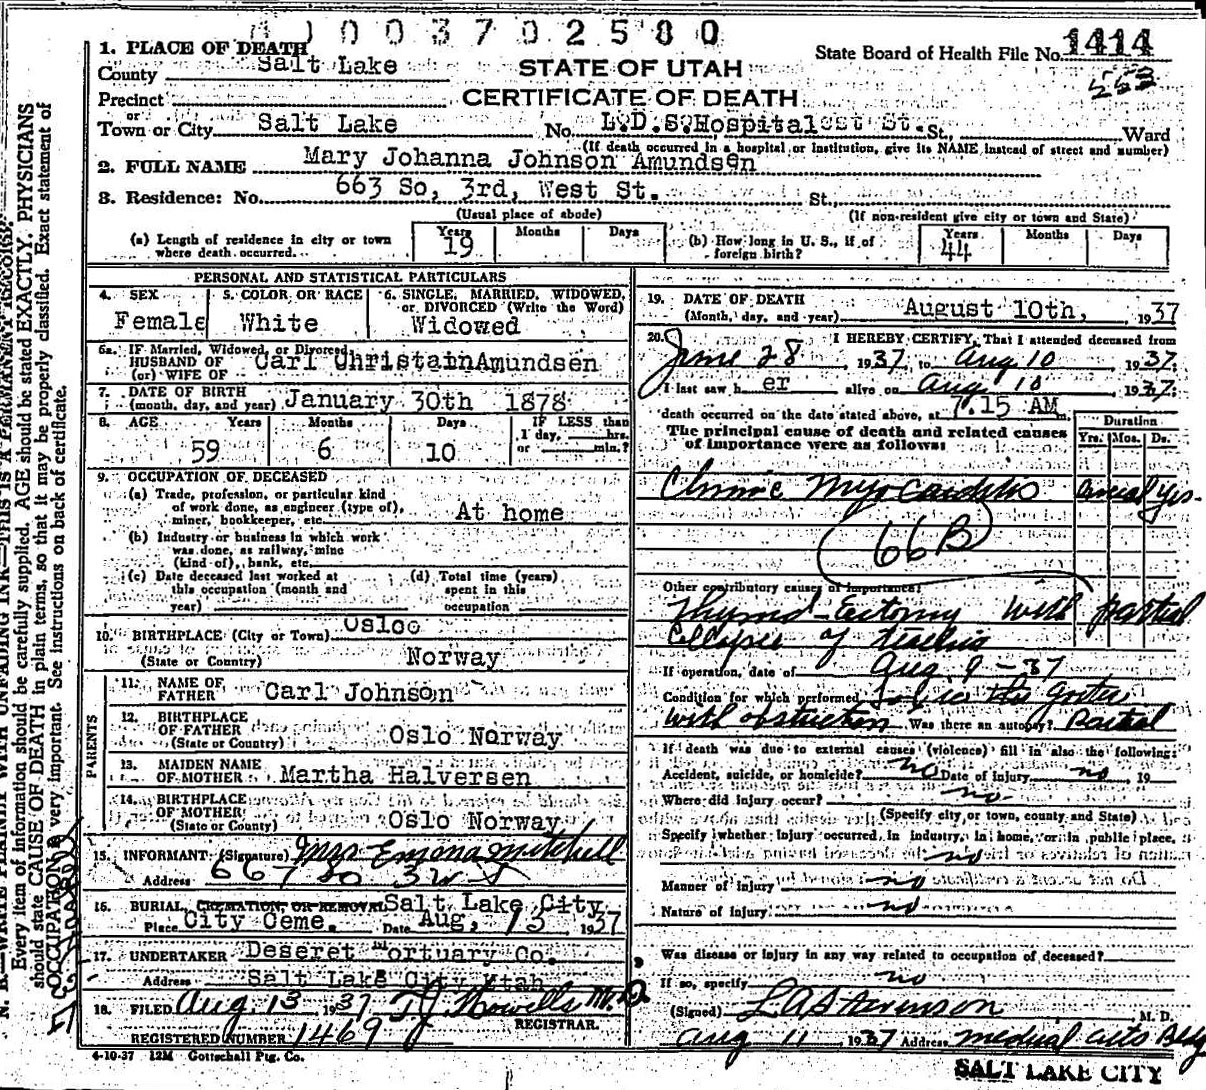 1003702580
1. PLACE OF DEATH
State Board of Health File No. 1414
County Salt Lake
STATE OF UTAH
Precinct
CERTIFICATE OF DEATH
or
Town or City Salt Lake No. L.D.S. Hospital St. St., Ward
(If death occurred in a hospital or institution, give its NAME instead of street and number)
2. FULL NAME Mary Johanna Johnson Amundsen
3. Residence: No. 663 So, 3rd, West St. St.,
(Usual place of abode) (If non-resident give city or town and State)
(a) Length of residence in city or town where death occurred. Years 19 Months Days
(b) How long in U. S., if of foreign birth? Years 44 Months Days
PERSONAL AND STATISTICAL PARTICULARS
4. SEX Female
5. COLOR OR RACE White
6. SINGLE, MARRIED, WIDOWED, or DIVORCED (Write the Word) Widowed
6a. If Married, Widowed, or Divorced,
HUSBAND OF
(or) WIFE OF Carl ChristainAmundsen
7. DATE OF BIRTH
(month, day, and year) January 30th 1878
8. AGE Years Months Days IF LESS than
1 day, hrs.
or min.?
59 6 10
9. OCCUPATION OF DECEASED
(a) Trade, profession, or particular kind
of work done, as engineer (type of),
miner, bookkeeper, etc. At home
(b) Industry or business in which work
was done, as railway, mine
(kind of), bank, etc.
(c) Date deceased last worked at
this occupation (month and
year)
(d) Total time (years)
spent in this
occupation
10. BIRTHPLACE (City or Town) Osloo
(State or Country) Norway
PARENTS
11. NAME OF
FATHER Carl Johnson
12. BIRTHPLACE
OF FATHER
(State or Country) Oslo Norway
13. MAIDEN NAME
OF MOTHER Martha Halversen
14. BIRTHPLACE
OF MOTHER
(State or Country) Oslo Norway
15. INFORMANT: (Signature) Mrs Emma Mitchell
Address 667 So 3 W St
16. BURIAL, CREMATION, OR REMOVAL Salt Lake City
Place City Ceme. Date Aug, 13 1937
17. UNDERTAKER Deseret Mortuary Co.
Address Salt Lake City Utah
18. FILED Aug 13 1937 T J Howells M.D.
REGISTRAR.
REGISTERED NUMBER 1469
4-10-37 12M Gottschall Ptg. Co.
19. DATE OF DEATH
(Month, day, and year) August 10th, 1937
20. I HEREBY CERTIFY, That I attended deceased from
June 28 1937, to Aug 10 1937;
I last saw her alive on Aug 10 1937;
death occurred on the date stated above, at 7.15 AM m.
The principal cause of death and related causes
of importance were as follows:
Duration
Yrs. Mos. Ds.
Chronic Myocarditis several yrs.
66B
Other contributory causes of importance:
Thyroid-Ectomy with partial
Collapse of trachea
If operation, date of Aug. 9 - 37
Condition for which performed goiter
with obstruction Was there an autopsy? Partial
If death was due to external causes (violence) fill in also the following:
Accident, suicide, or homicide? no Date of injury no 19
Where did injury occur? no
(Specify city or town, county and State)
Specify whether injury occurred in industry, in home, or in public place,
no
Manner of injury no
Nature of injury no
Was disease or injury in any way related to occupation of deceased?
If so, specify no
(Signed) L A Stevenson M. D.
Aug 11, 1937 Address Medical Arts Bldg
SALT LAKE CITY
N. B.—WRITE PLAINLY WITH UNFADING INK—THIS IS A PERMANENT RECORD.
Every item of information should be carefully supplied. AGE should be stated EXACTLY. PHYSICIANS
should state CAUSE OF DEATH in plain terms, so that it may be properly classified. Exact statement of
OCCUPATION is very important. See instructions on back of certificate.